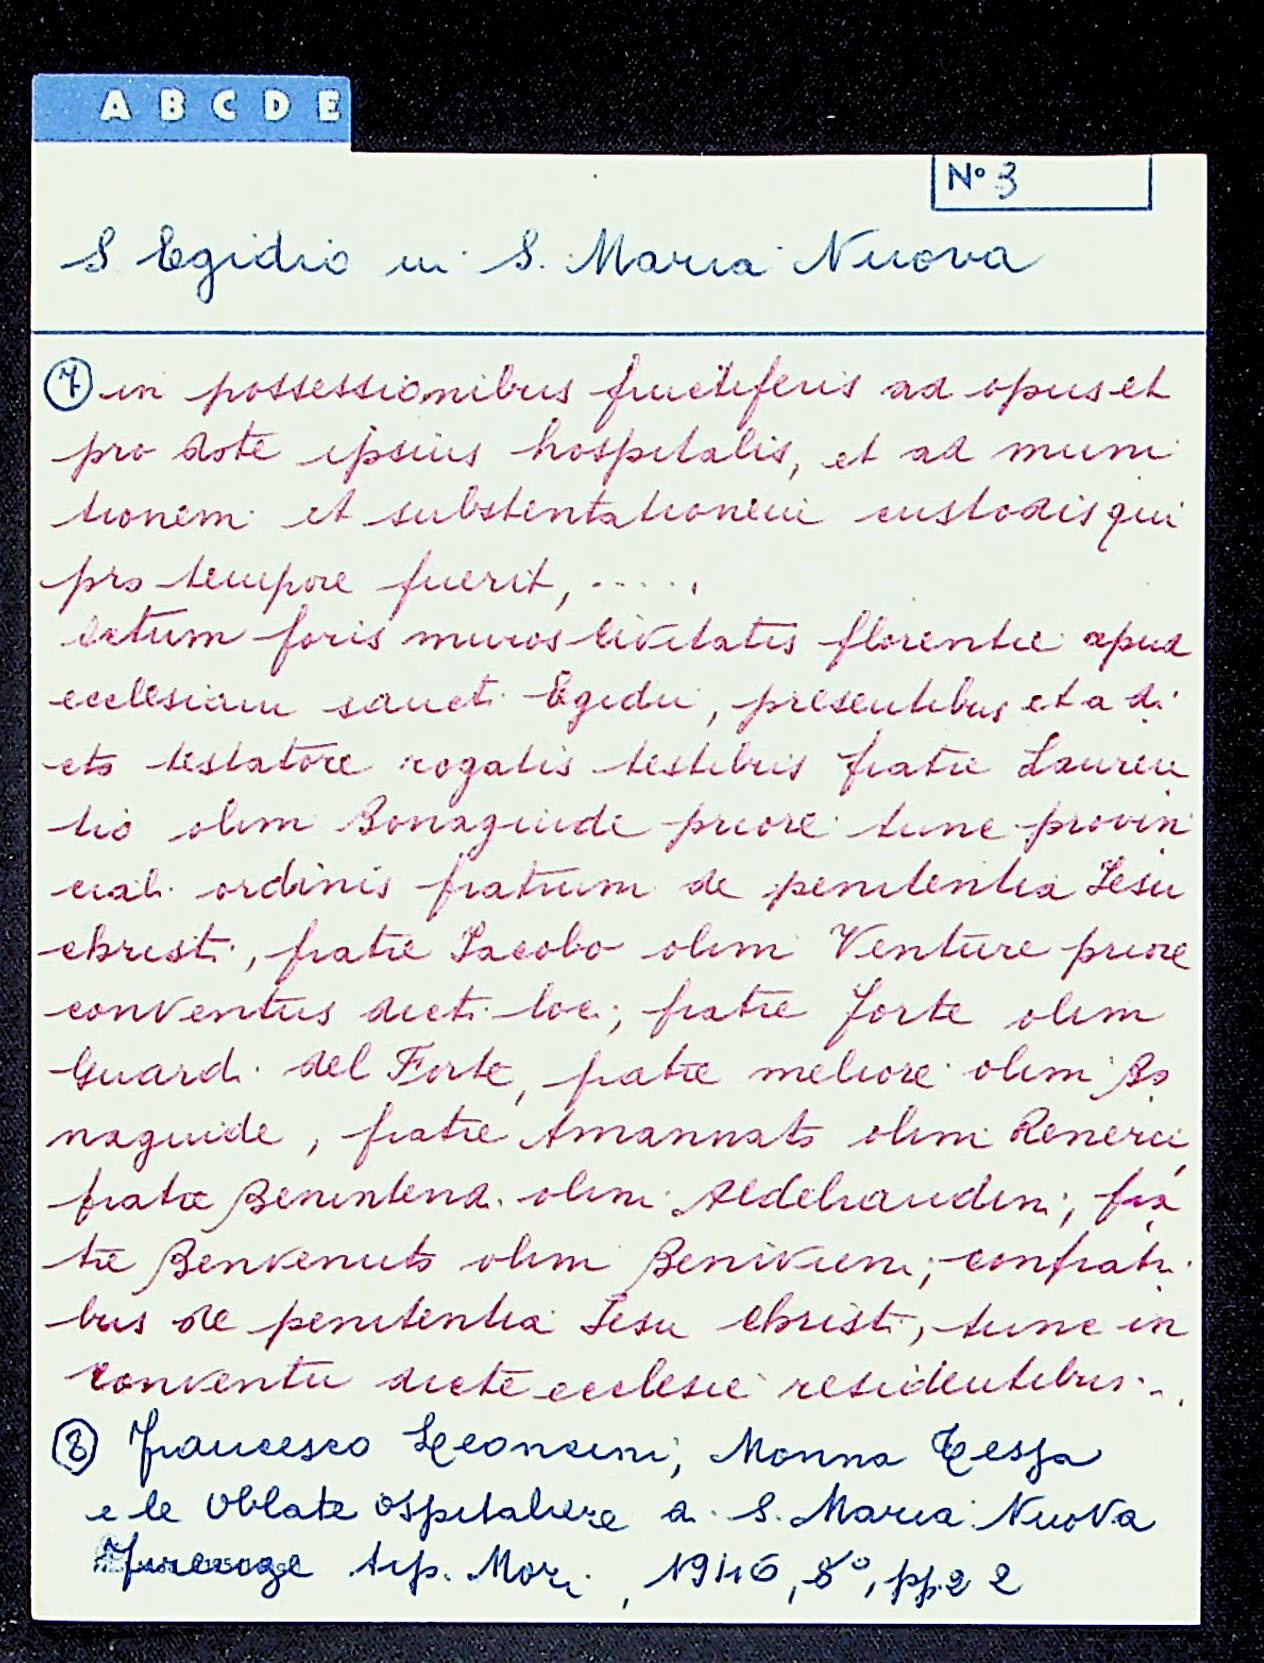 A B C D E
N° 3
S Egidio in S. Maria Nuova
7 in possessionibus fructiferis ad opus et
pro dote ipsius hospitalis, et ad muni
tionem et substentationem custodis qui
pro tempore fuerit, .....
Actum foris muros civitatis florentie apud
ecclesiam sancti Egidii, presentibus et a di
cto testatore rogatis testibus fratre Lauren
tio olim Bonaguide priore tunc provin
ciali ordinis fratrum de penitentia Iesu
christi, fratre Iacobo olim Venture priore
conventus dicti loci, fratre Forte olim
Guardi del Forte, fratre meliore olim Bo
naguide, fratre Amannato olim Renerii,
fratre Benintendi olim Aldebrandini, fra
tre Benvenuto olim Benivieni, confratri
bus de penitentia Iesu christi, tunc in
conventu dicte ecclesie residentibus...
8 Francesco Leoncini, Monna Tessa
e le Oblate ospitaliere di S. Maria Nuova
Firenze tip. Mori, 1946, 8°, pp. 22